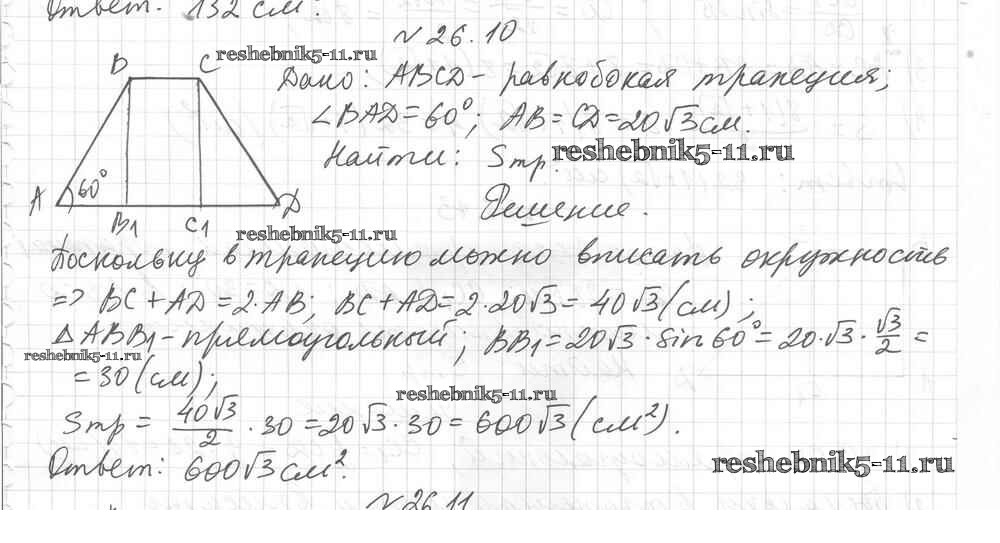 Ответ: 132 см².
№ 26.10
reshebnik5-11.ru
B C
Дано: ABCD - равнобокая трапеция;
∠BAD = 60°; AB = CD = 20√3 см.
Найти: Sтр.
reshebnik5-11.ru
A 60° D
B1 C1
Решение.
reshebnik5-11.ru
Поскольку в трапецию можно вписать окружность
=> BC + AD = 2·AB; BC + AD = 2·20√3 = 40√3 (см);
△ABB1 - прямоугольный; BB1 = 20√3 · sin 60° = 20·√3·√3/2 =
reshebnik5-11.ru
= 30 (см);
reshebnik5-11.ru
Sтр = 40√3/2 · 30 = 20√3 · 30 = 600√3 (см²).
Ответ: 600√3 см².
reshebnik5-11.ru
№ 26.11